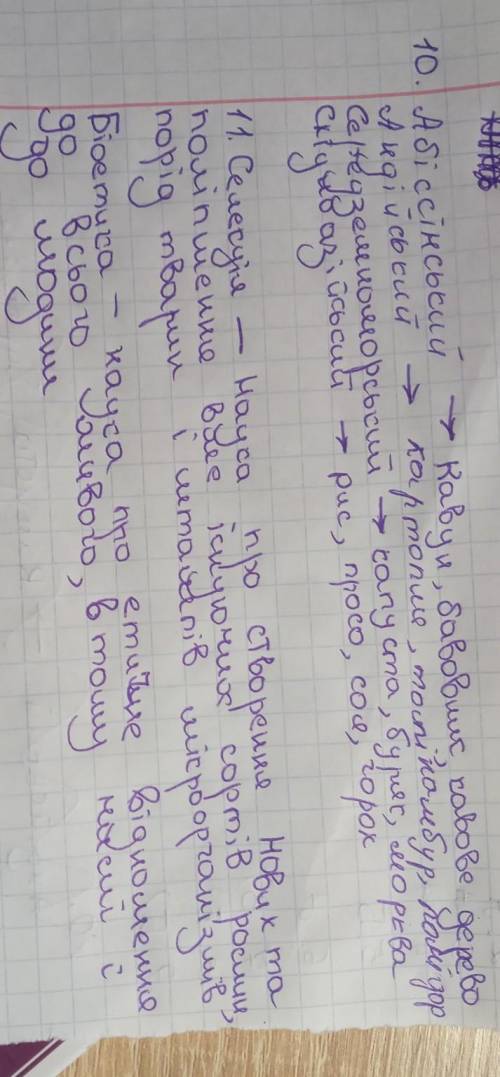 10. Абіссінський → Кавун, бавовник, кавове дерево
Андійський → картопля, топінамбур, помідор
Середземноморський → капуста, буряк, морква
Східноазійський → рис, просо, соя, горох
11. Селекція — Наука про створення нових та
поліпшення вже існуючих сортів рослин,
порід тварин і штамів мікроорганізмів
Біоетика – наука про етичне відношення
до всього живого, в тому числі і
до людини